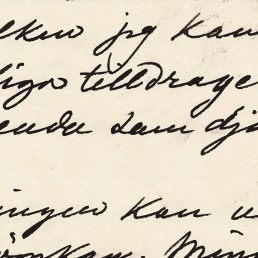 lken jag kan
liga tilldrage
enda som dj
ingen kan u
önkan. Min